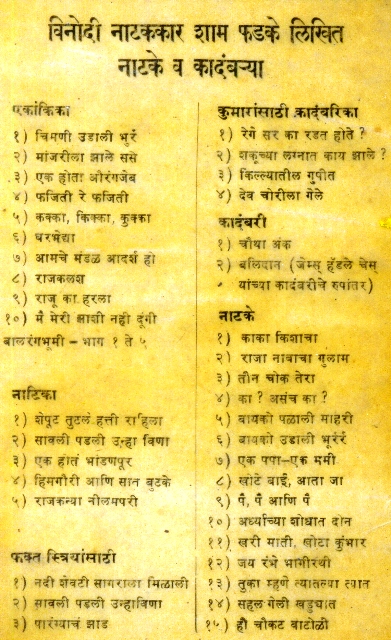 विनोदी नाटककार शाम फडके लिखित
नाटके व कादंबऱ्या
एकांकिका
१) चिमणी उडाली भुर्र
२) मांजरीला झाले ससे
३) एक होता औरंगजेब
४) फजिती रे फजिती
५) कक्का, किक्का, कुक्का
६) घरभेद्या
७) आमचे मंडळ आदर्श हो
८) राजकलश
९) राजू का हरला
१०) मै मेरी झाशी नही दूंगी
बालरंगभूमी - भाग १ ते ५
नाटिका
१) शेपूट तुटलं हत्ती राहूला
२) सावली पडली उन्हा विणा
३) एक होतं भांडणपूर
४) हिमगौरी आणि सात बुटके
५) राजकन्या नीलमपरी
फक्त स्त्रियांसाठी
१) नदी शेवटी सागराला मिळाली
२) सावली पडली उन्हाविणा
३) पारंग्याचं झाड
कुमारांसाठी कादंबरिका
१) रेगे सर का रडत होते ?
२) शकूच्या लग्नात काय झाले ?
३) किल्ल्यातील गुपीत
४) देव चोरीला गेले
कादंबरी
१) चौथा अंक
२) बलिदान (जेम्स् हॅडले चेस्
यांच्या कादंबरीचे रुपांतर)
नाटके
१) काका किशाचा
२) राजा नावाचा गुलाम
३) तीन चोक तेरा
४) का ? असंच का ?
५) बायको पळाली माहेरी
६) बायको उडाली भुर्रर्र
७) एक पपा-एक ममी
८) खोटे बाई, आता जा
९) पँ, पँ आणि पँ
१०) अर्ध्याच्या शोधात दोन
११) खरी माती, खोटा कुंभार
१२) जय रंभे भागीरथी
१३) तुका म्हणे त्यातल्या त्यात
१४) सहल गेली खड्ड्यात
१५) ही चौकट वाटोळी